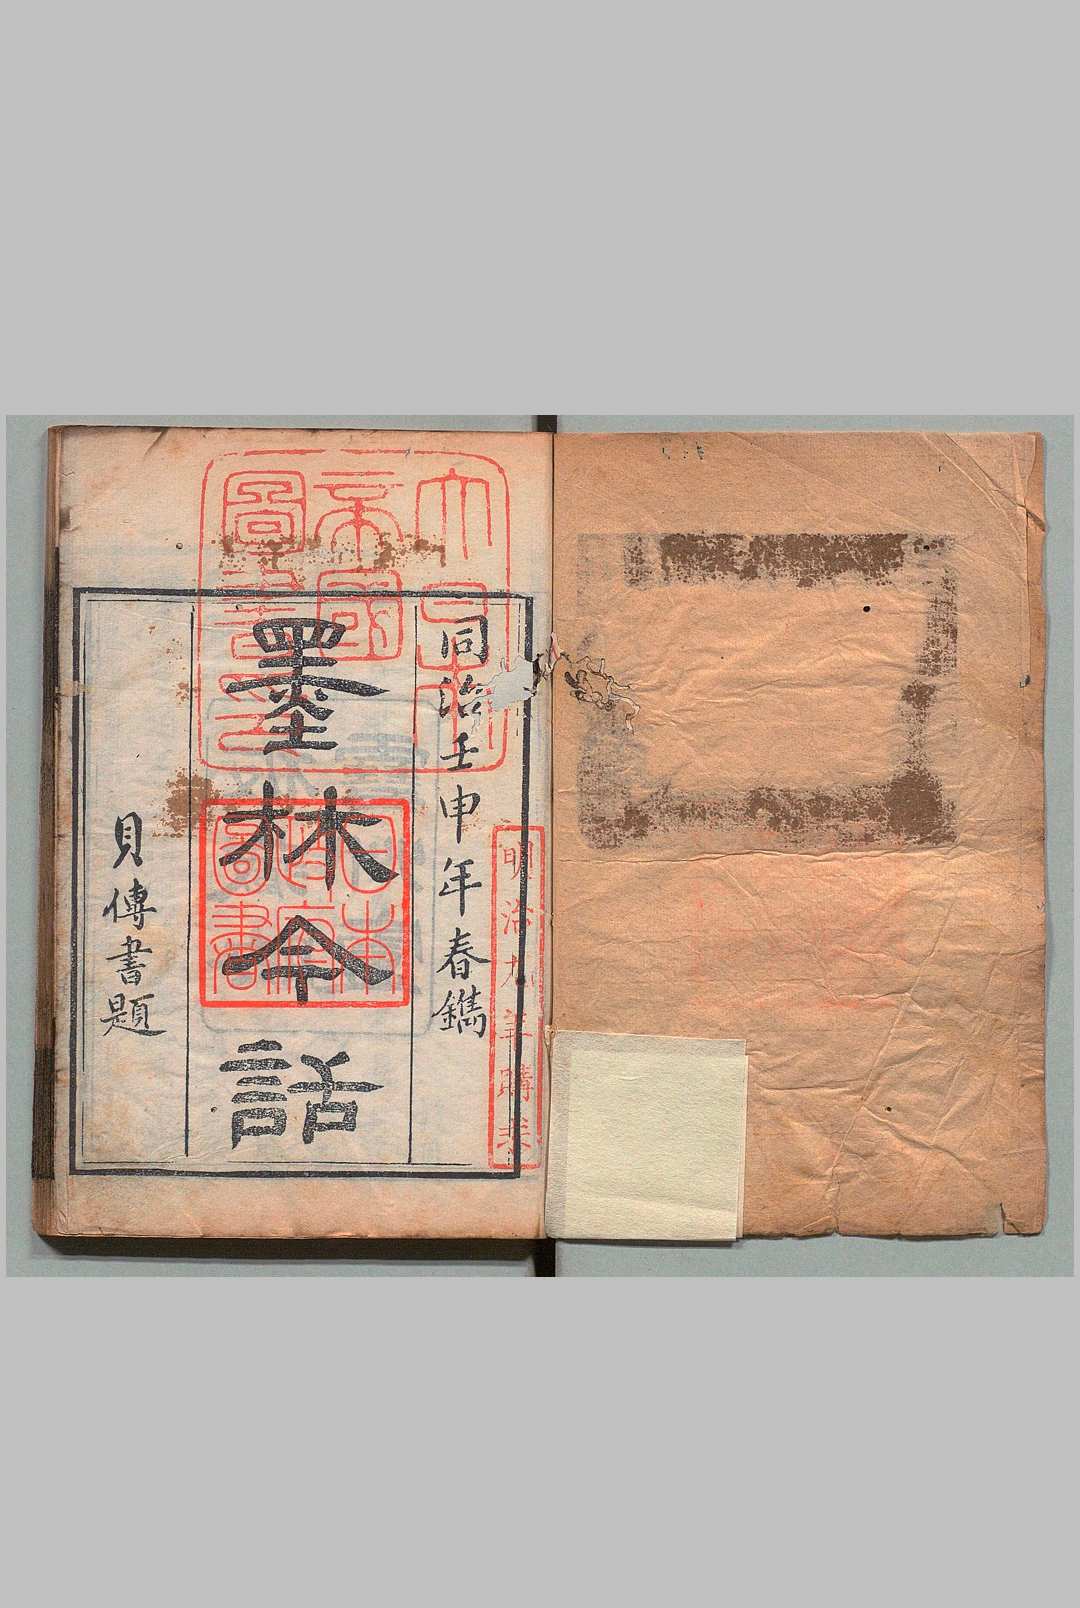 同治壬申年春鐫
墨林今話
貝傳書題
大日本
帝國
圖書印
日本
政府
圖書
明治九年購求